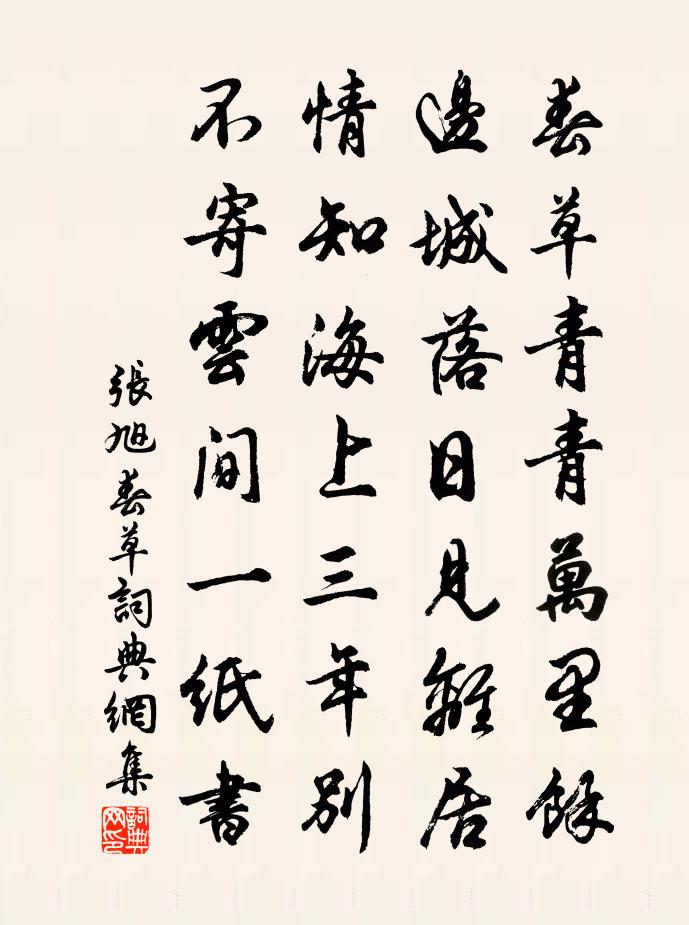 春草青青萬里餘
邊城落日見離居
情知海上三年別
不寄雲間一紙書
張旭春草詞典網集
詞典网印